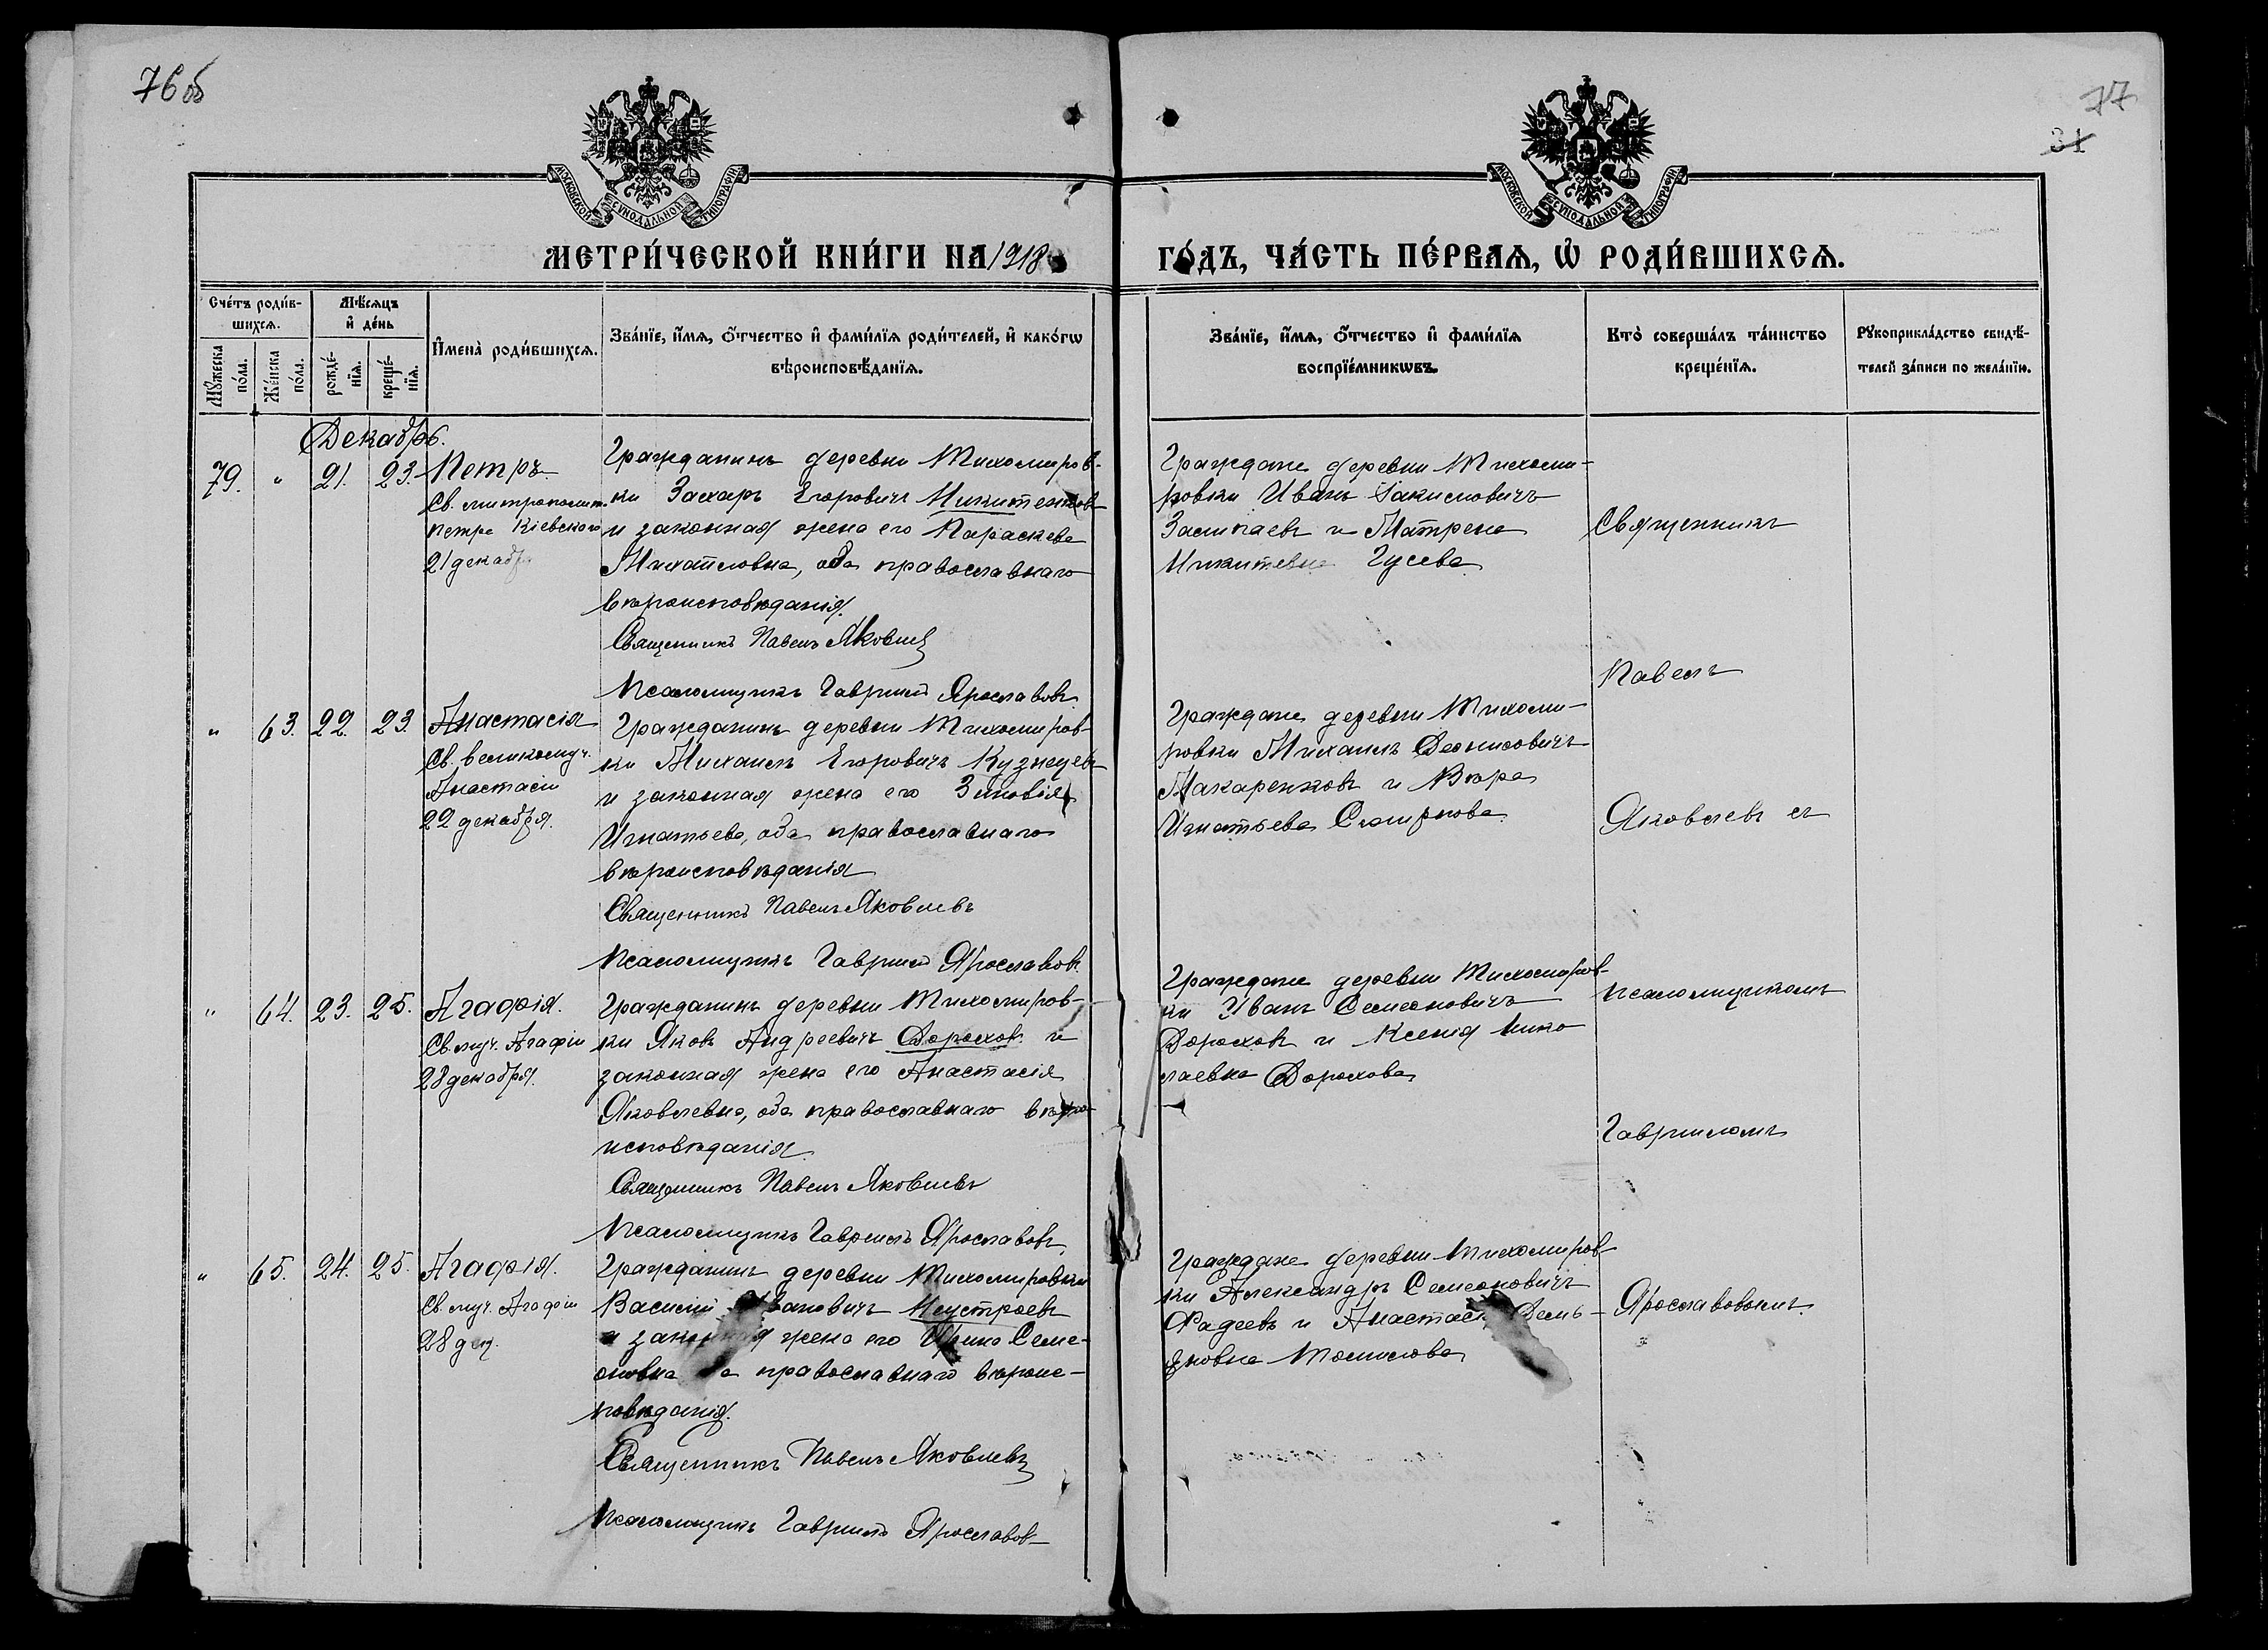 76 об
77
31
МОСКОВСКОЙ СѴНОДАЛЬНОЙ ТИПОГРАФІИ
МОСКОВСКОЙ СѴНОДАЛЬНОЙ ТИПОГРАФІИ
МЕТРИ́ЧЕСКОЙ КНИ́ГИ НА 1918
ГО́ДЪ, ЧА́СТЬ ПЕ́РВАѦ, Ѡ҆ РОДИ́ВШИХСѦ.
Сче́тъ роди́в-
шихсѧ.
Мꙋ́жеска по́ла.
Же́нска по́ла.
Мѣ́сѧцъ
и҆ де́нь
рожде́-
нїѧ.
креще́-
нїѧ.
И҆мена̀ роди́вшихсѧ.
Зва́нїе, и҆́мѧ, ѻ҆́тчество и҆ фами́лїѧ роди́телей, и҆ како́гѡ
вѣроисповѣ́данїѧ.
Зва́нїе, и҆́мѧ, ѻ҆́тчество и҆ фами́лїѧ
воспрїе́мникѡвъ.
Кто̀ соверша́лъ та́инство
креще́нїѧ.
Рꙋкоприкла́дство свидѣ́-
телей за́писи по жела́нїю.
Декабрь.
79. " 21. 23. Петръ
Св. митрополит.
Петра Кіевскаго
21 декаб
Гражданинъ деревни Тихомиров-
ки Захаръ Егоровичъ Никитенков
и законная жена его Параскева
Михайловна, оба православнаго
вѣроисповѣданія.
Священникъ Павелъ Яковлев
Псаломщикъ Гавриилъ Ярославовъ.
Граждане деревни Тихоми-
ровки Иванъ
и Матрена
Никитевна Гусева
Священникъ
" 63. 22. 23 Анастасія
Св. великомуч.
Анастасіи
22 декабря.
Гражданинъ деревни Тихомиров-
ки Михаилъ Егоровичъ Кузнецовъ
и законная жена его Зиновія
Игнатьева, оба православнаго
вѣроисповѣданія
Священникъ Павелъ Яковлевъ
Псаломщикъ Гавриилъ Ярославовъ.
Граждане деревни Тихоми-
ровки Михаилъ Деонисовичъ
Макаренковъ и Вѣра
Игнатьева Смирнова
Павелъ
Яковлевъ съ
" 64. 23. 25. Агафія.
Св. муч. Агафіи
28 декабря.
Гражданинъ деревни Тихомиров-
ки Яковъ Андреевичъ Дороховъ и
законная жена его Анастасія
Яковлевна, оба православнаго вѣро-
исповѣданія
Священникъ Павелъ Яковлевъ
Псаломщикъ Гавриилъ Ярославовъ
Граждане деревни Тихомиров-
ки Иванъ Семеоновичъ
Дороховъ и Ксенія Нико
лаевна Дорохова
псаломщикомъ
Гаврииломъ
" 65. 24. 25. Агафія.
Св. муч. Агафіи
28 дек.
Гражданинъ деревни Тихомировки
Василій Ивановичъ Неустроевъ
и законная жена его Ирина Семе-
оновна оба православнаго вѣроис-
повѣданія.
Священникъ Павелъ Яковлевъ
Псаломщикъ Гавриилъ Ярославов
Граждане деревни Тихомиров-
ки Александръ Семеоновичъ
Фадеевъ и Анастасія Демь-
яновна
Ярославовымъ.